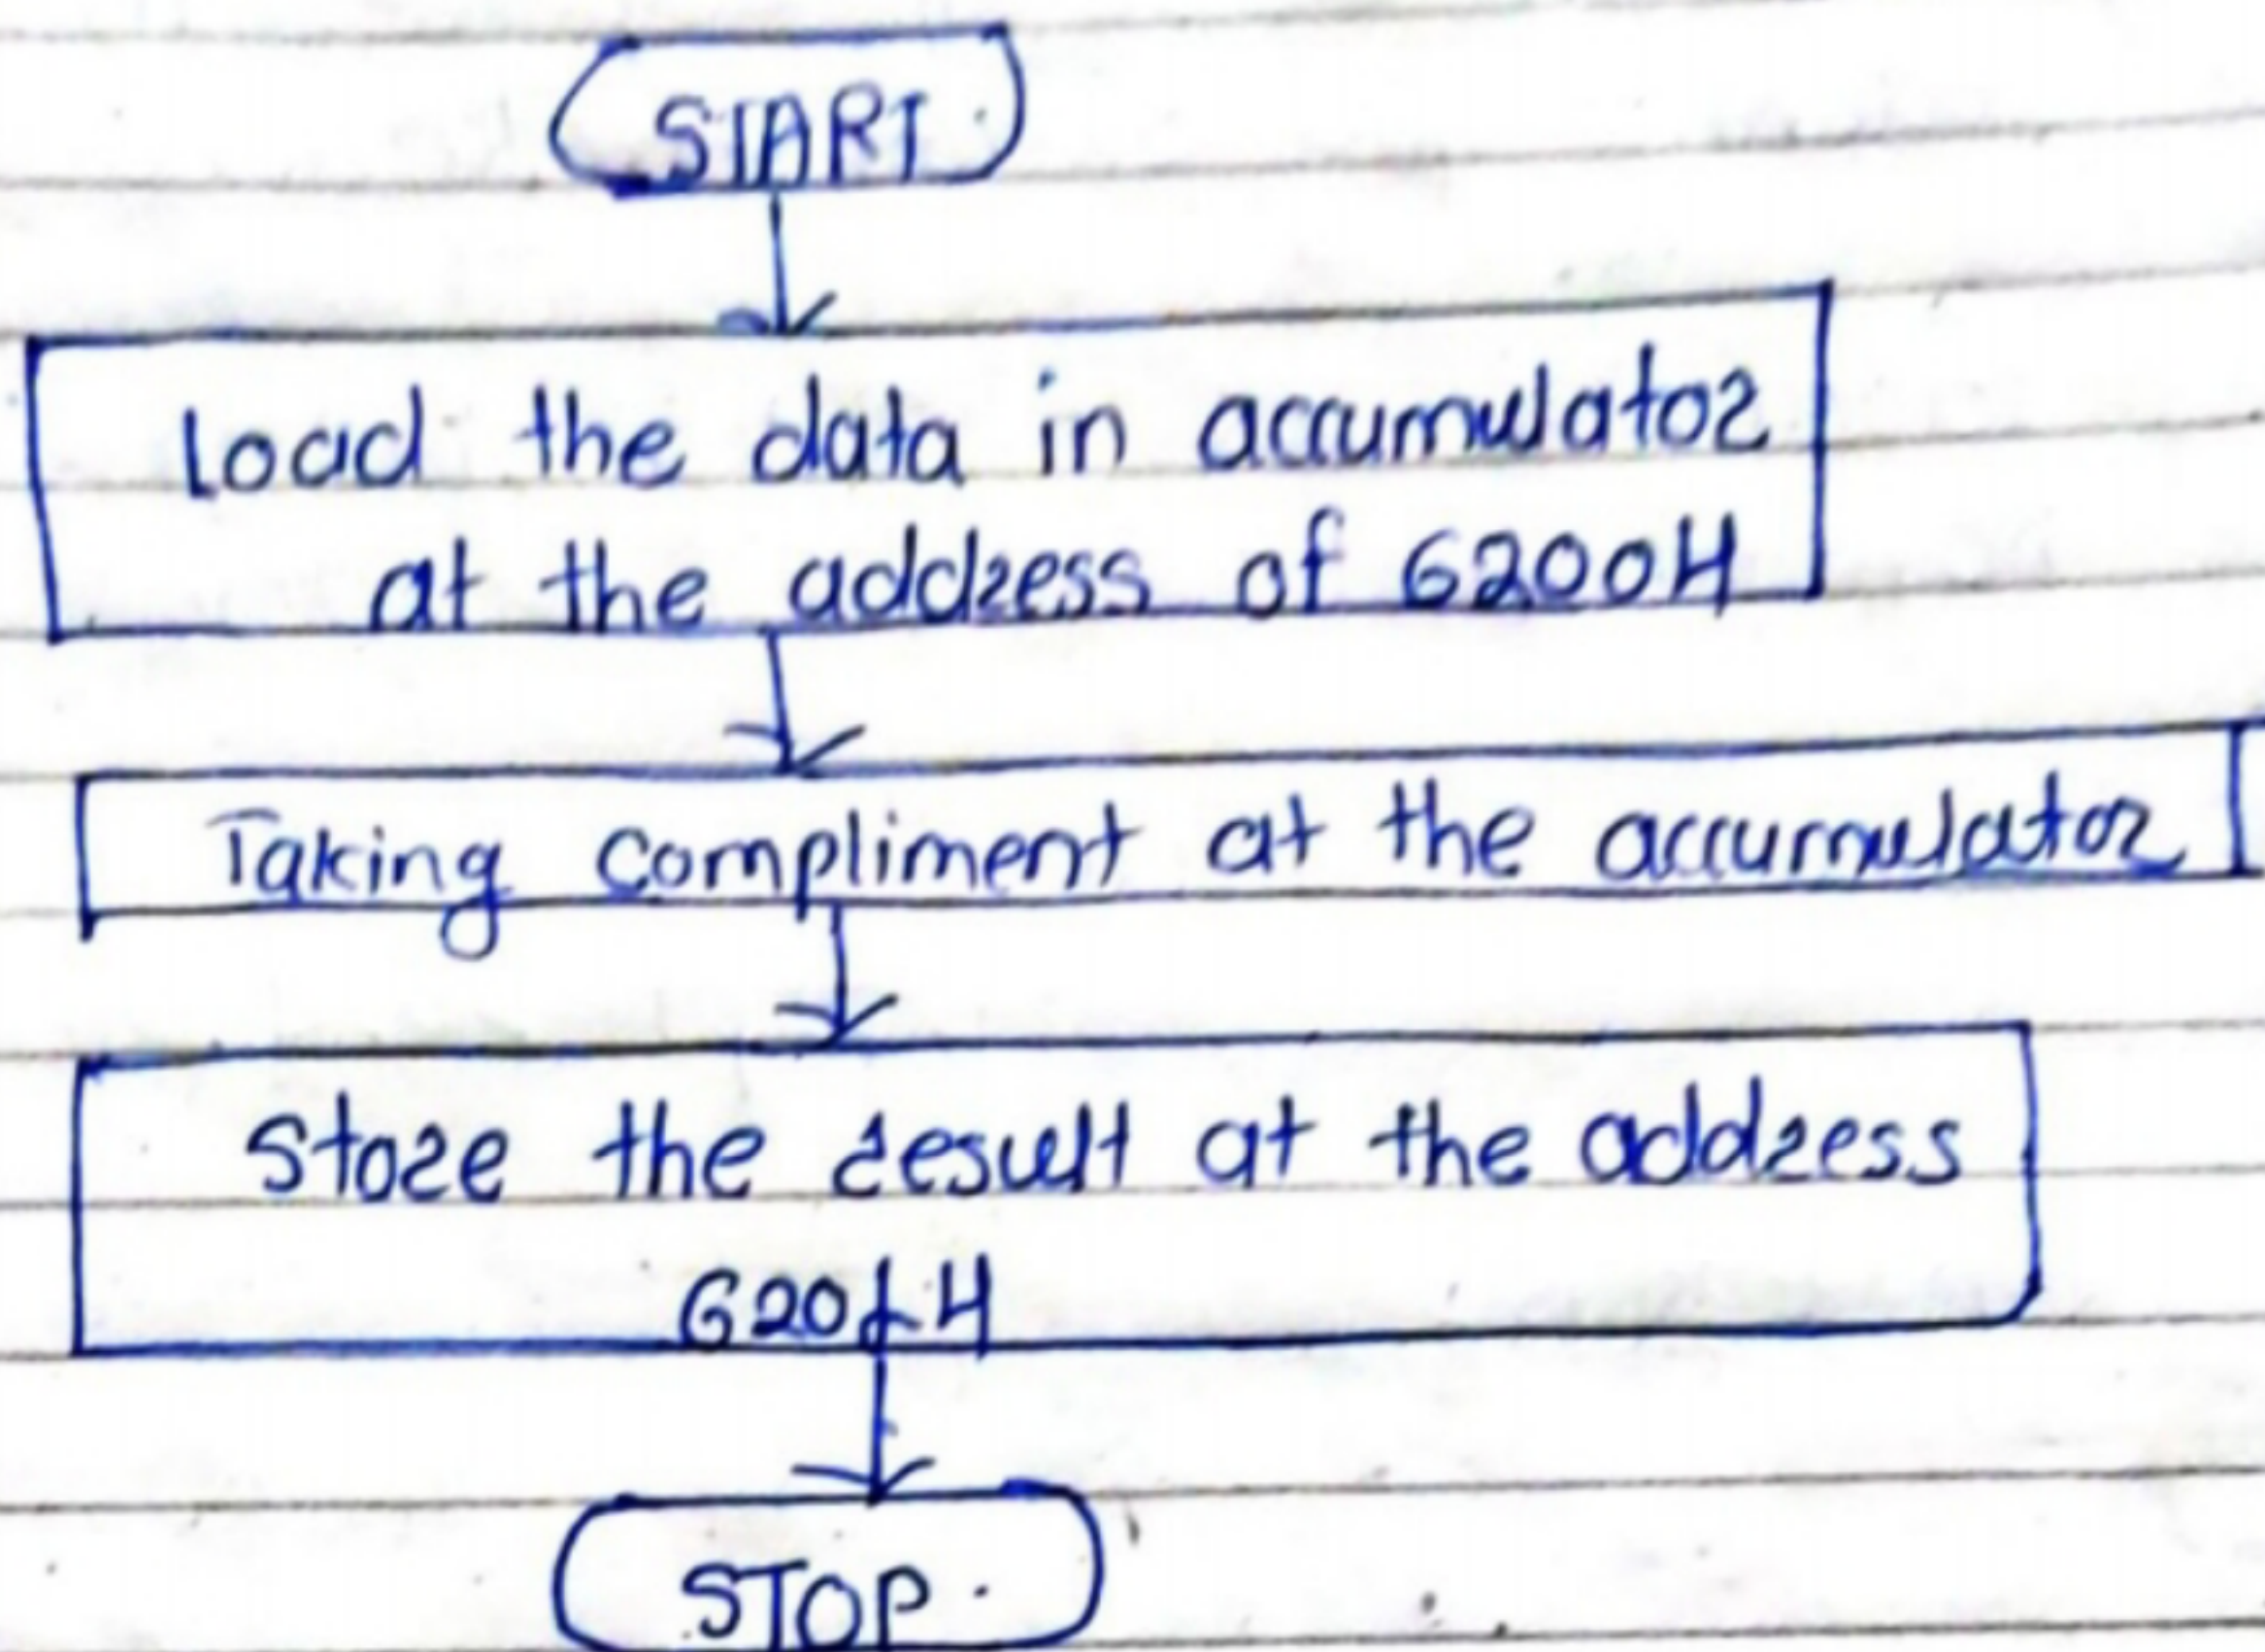 START
Load the data in accumulator
at the address of 6200H
Taking compliment at the accumulator
Store the result at the address
6201H
STOP.